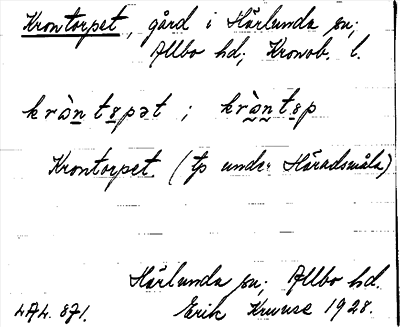 Krontorpet, gård i Härlunda sn;
Allbo hd; Kronob. l.
kràntspət ; kràntsp
Krontorpet. (tp under Häradsmåla)
Härlunda sn; Allbo hd.
LAL. 871. Erik Kruuse 1928.